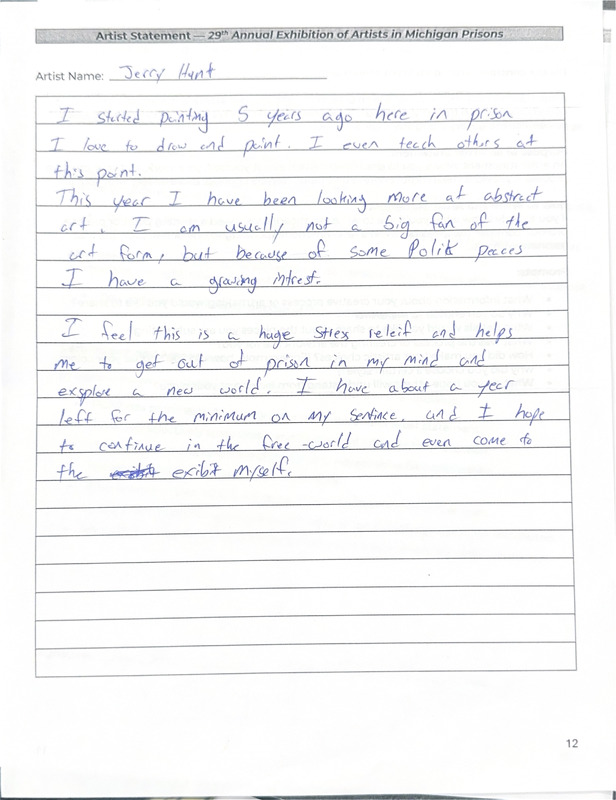 Artist Statement — 29th Annual Exhibition of Artists in Michigan Prisons
Artist Name: Jerry Hunt
I started painting 5 years ago here in prison
I love to draw and paint. I even teach others at
this point.
This year I have been looking more at abstract
art. I am usually not a big fan of the
art form, but because of some Polik peaces
I have a growing intrest.
I feel this is a huge stress releif and helps
me to get out of prison in my mind and
exsplore a new world. I have about a year
left for the minimum on my sentince, and I hope
to continue in the free-world and even come to
the exibit myself.
12